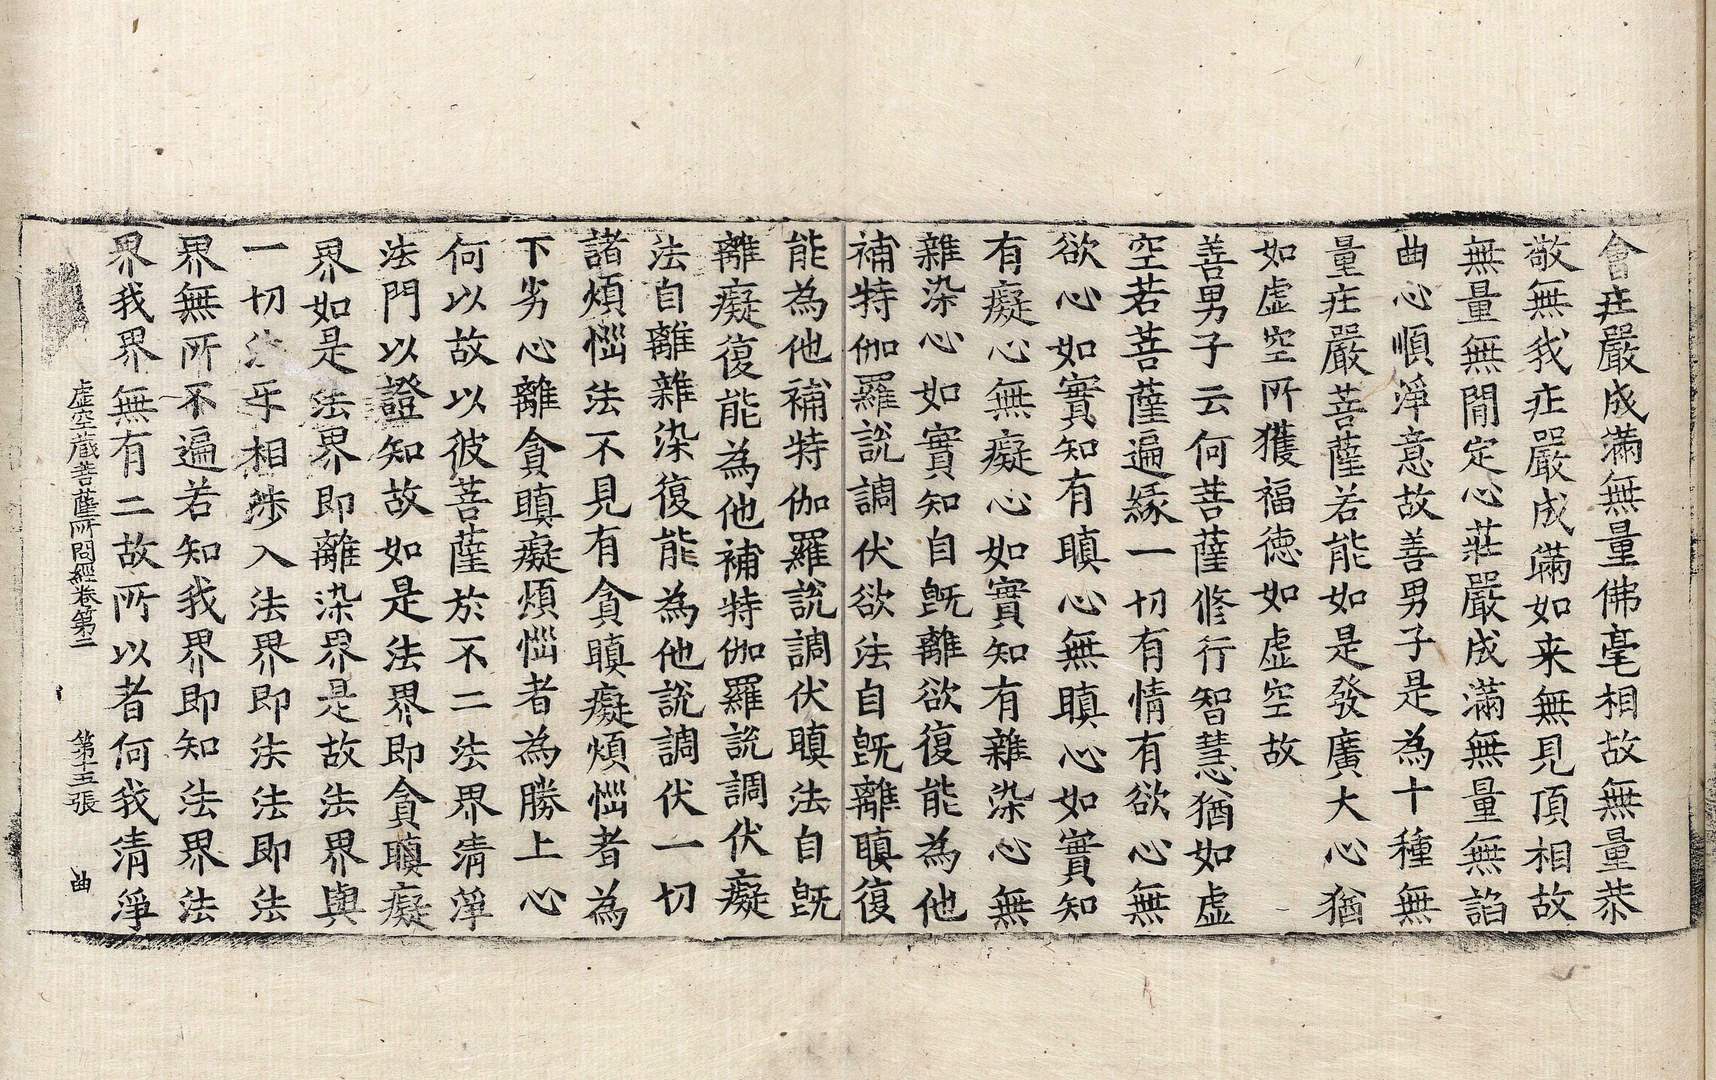 會庄嚴成滿無量佛毫相故無量恭
敬無我庄嚴成滿如来無見頂相故
無量無閒定心莊嚴成滿無量無諂
曲心順淨意故善男子是為十種無
量庄嚴菩薩若能如是發廣大心猶
如虛空所獲福德如虛空故
善男子云何菩薩修行智慧猶如虛
空若菩薩遍緣一切有情有欲心無
欲心如實知有瞋心無瞋心如實知
有癡心無癡心如實知有雜染心無
雜染心如實知自旣離欲復能為他
補特伽羅說調伏欲法自旣離瞋復
能為他補特伽羅說調伏瞋法自旣
離癡復能為他補特伽羅說調伏癡
法自離雜染復能為他說調伏一切
諸煩惱法不見有貪瞋癡煩惱者為
下劣心離貪瞋癡煩惱者為勝上心
何以故以彼菩薩於不二法界清淨
法門以證知故如是法界即貪瞋癡
界如是法界即離染界是故法界與
一切法互相涉入法界即法法即法
界無所不遍若知我界即知法界法
界我界無有二故所以者何我清淨
虛空藏菩薩所問經卷第二 第十五張 曲